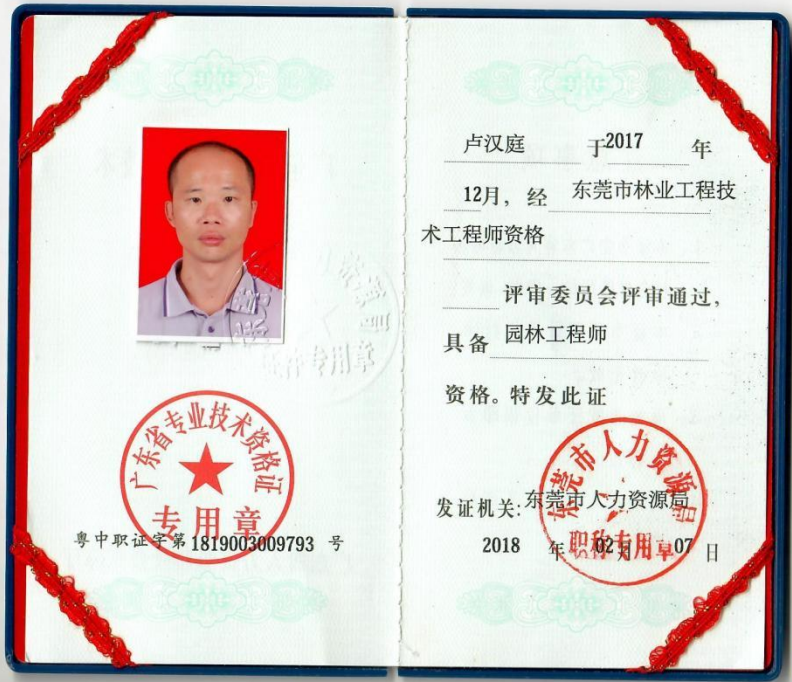 广东省专业技术资格证
专用章
粤中职证字第1819003009793号
卢汉庭 于2017 年
12月，经 东莞市林业工程技
术工程师资格
评审委员会评审通过，
具备 园林工程师
资格。特发此证
东莞市人力资源局
发证机关:东莞市人力资源局
2018 年 02月 07日
职称专用章